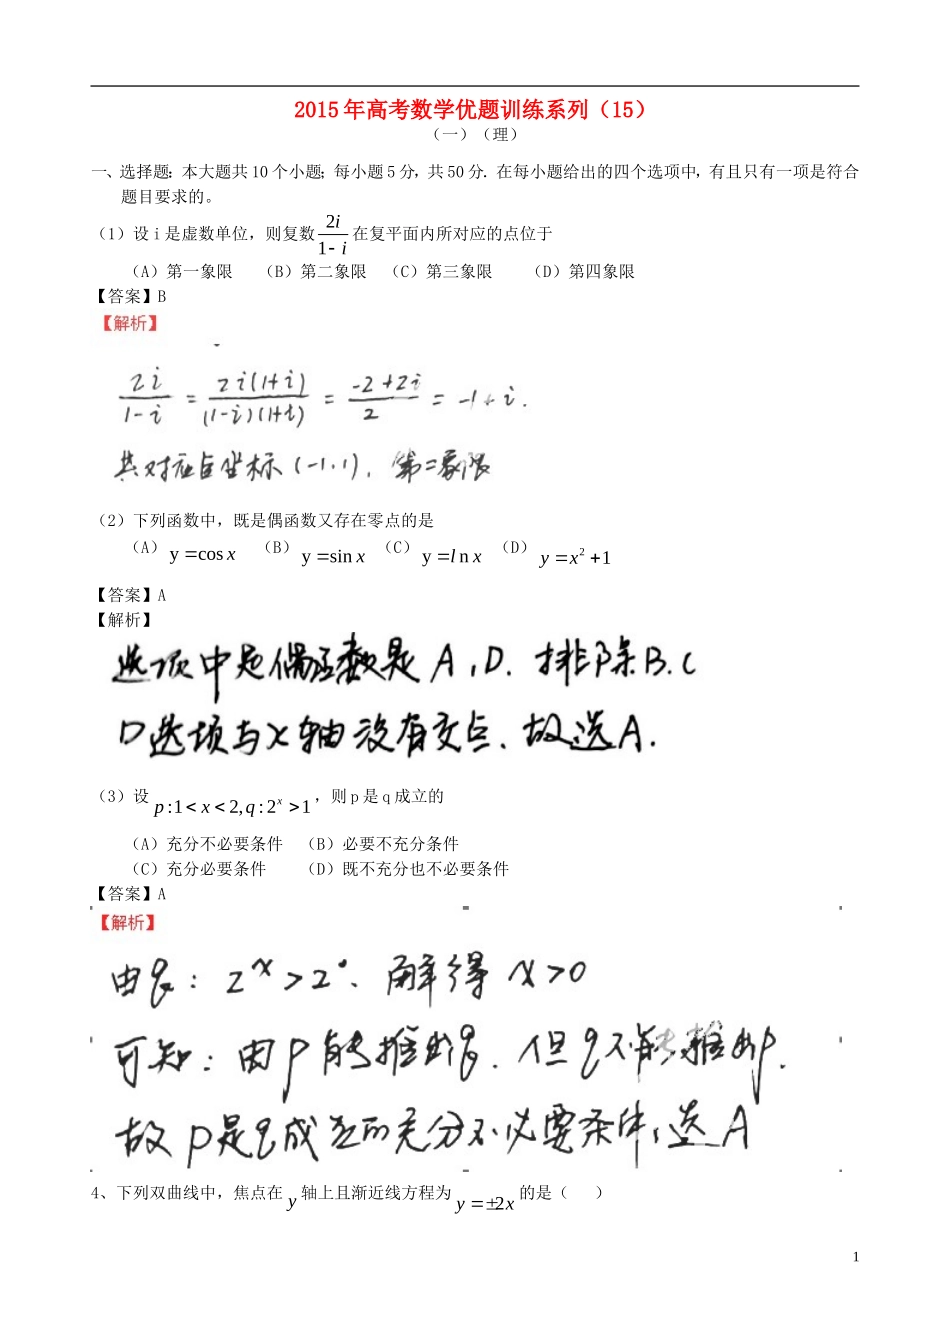 2015年高考数学优题训练系列（15）
（一）（理）
一、选择题：本大题共10个小题；每小题5分，共50分．在每小题给出的四个选项中，有且只有一项是符合
题目要求的。
（1）设i是虚数单位，则复数 2i/(1-i) 在复平面内所对应的点位于
（A）第一象限 （B）第二象限 （C）第三象限 （D）第四象限
【答案】B
【解析】
2i/(1-i) = 2i(1+i)/((1-i)(1+i)) = (-2+2i)/2 = -1+i.
其对应点坐标(-1,1), 第二象限
（2）下列函数中，既是偶函数又存在零点的是
（A）y=cos x （B）y=sin x （C）y=ln x （D）y=x²+1
【答案】A
【解析】
选项中是偶函数是A,D. 排除B.C
D选项与x轴没有交点、故选A.
（3）设 p:1<x<2,q:2ˣ>1，则p是q成立的
（A）充分不必要条件 （B）必要不充分条件
（C）充分必要条件 （D）既不充分也不必要条件
【答案】A
【解析】
由q: 2ˣ>2⁰. 解得 x>0
可知: 由p能推出q. 但q不能推出p.
故p是q成立的充分不必要条件, 选A
4、下列双曲线中，焦点在y轴上且渐近线方程为y=±2x的是（ ）
1